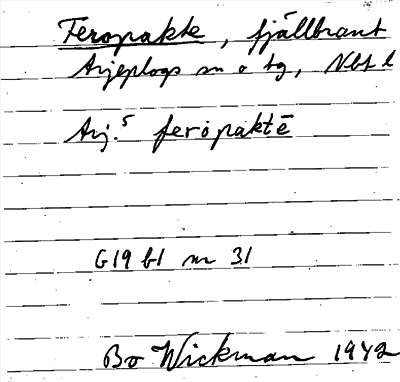 Feropakte, fjällbrant
Arjeplogs sn o tg, Nbt l
Arj.s feropaktē
G19 bl nr 31
Bo Wickman 1942